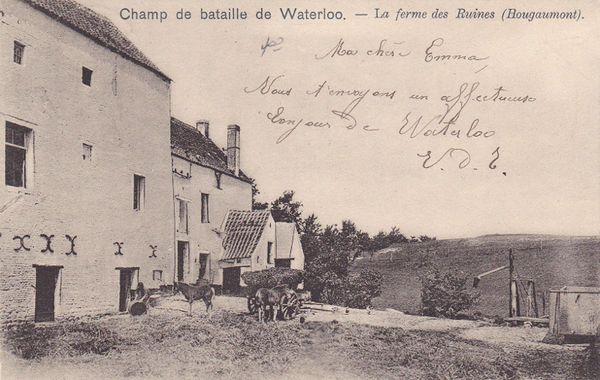 Champ de bataille de Waterloo. — La ferme des Ruines (Hougaumont).
Ma chère Emma,
Nous t'envoyons un affectueuse
bonjour de Waterloo
V. D. E.